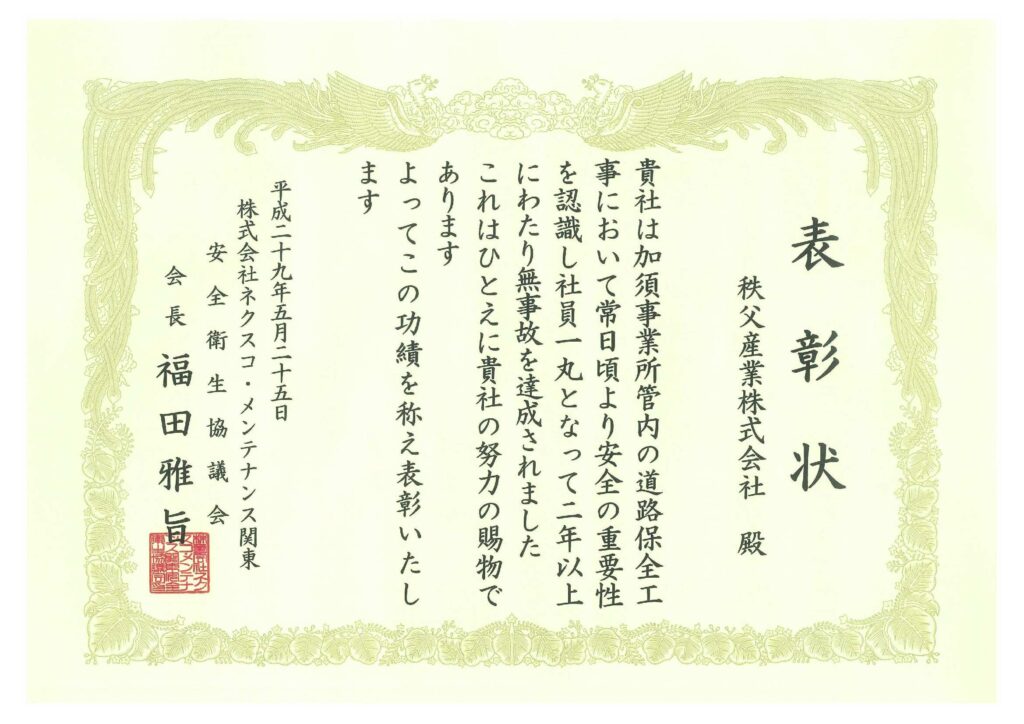 表彰状
秩父産業株式会社 殿
貴社は加須事業所管内の道路保全工
事において常日頃より安全の重要性
を認識し社員一丸となって二年以上
にわたり無事故を達成されました
これはひとえに貴社の努力の賜物で
あります
よってこの功績を称え表彰いたし
ます
平成二十九年五月二十五日
株式会社ネクスコ・メンテナンス関東
安全衛生協議会
会長 福田雅旨